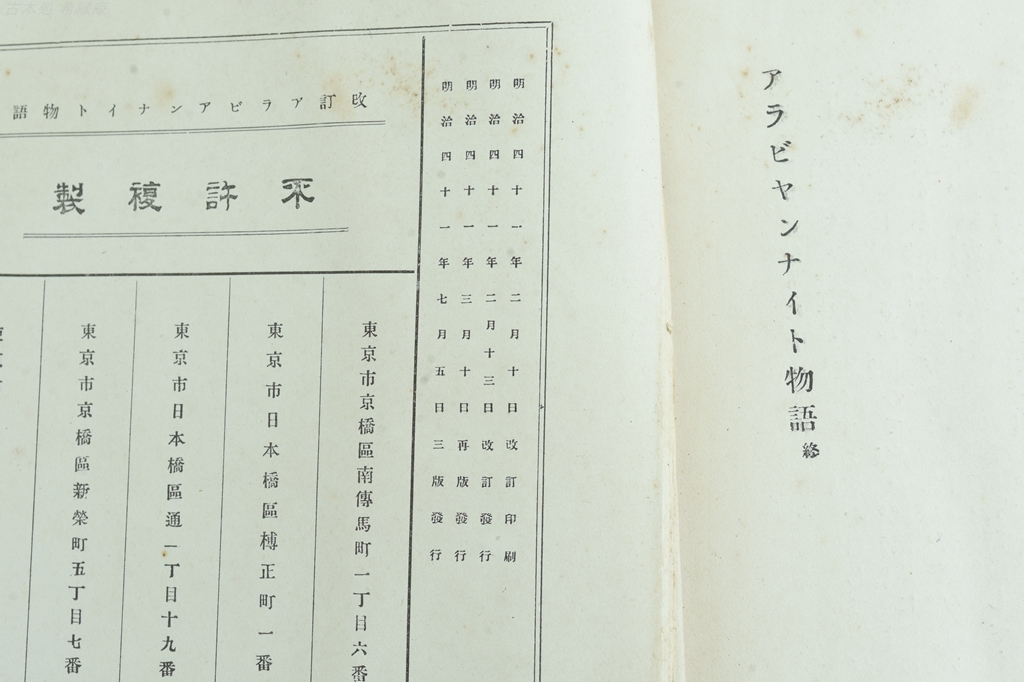 アラビヤンナイト物語終
明治四十一年二月十日改訂印刷
明治四十一年二月十三日改訂發行
明治四十一年三月十日再版發行
明治四十一年七月五日三版發行
改訂アラビアンナイト物語
不許複製
東京市京橋區南傳馬町一丁目六番
東京市日本橋區榑正町一番
東京市日本橋區通一丁目十九番
東京市京橋區新榮町五丁目七番